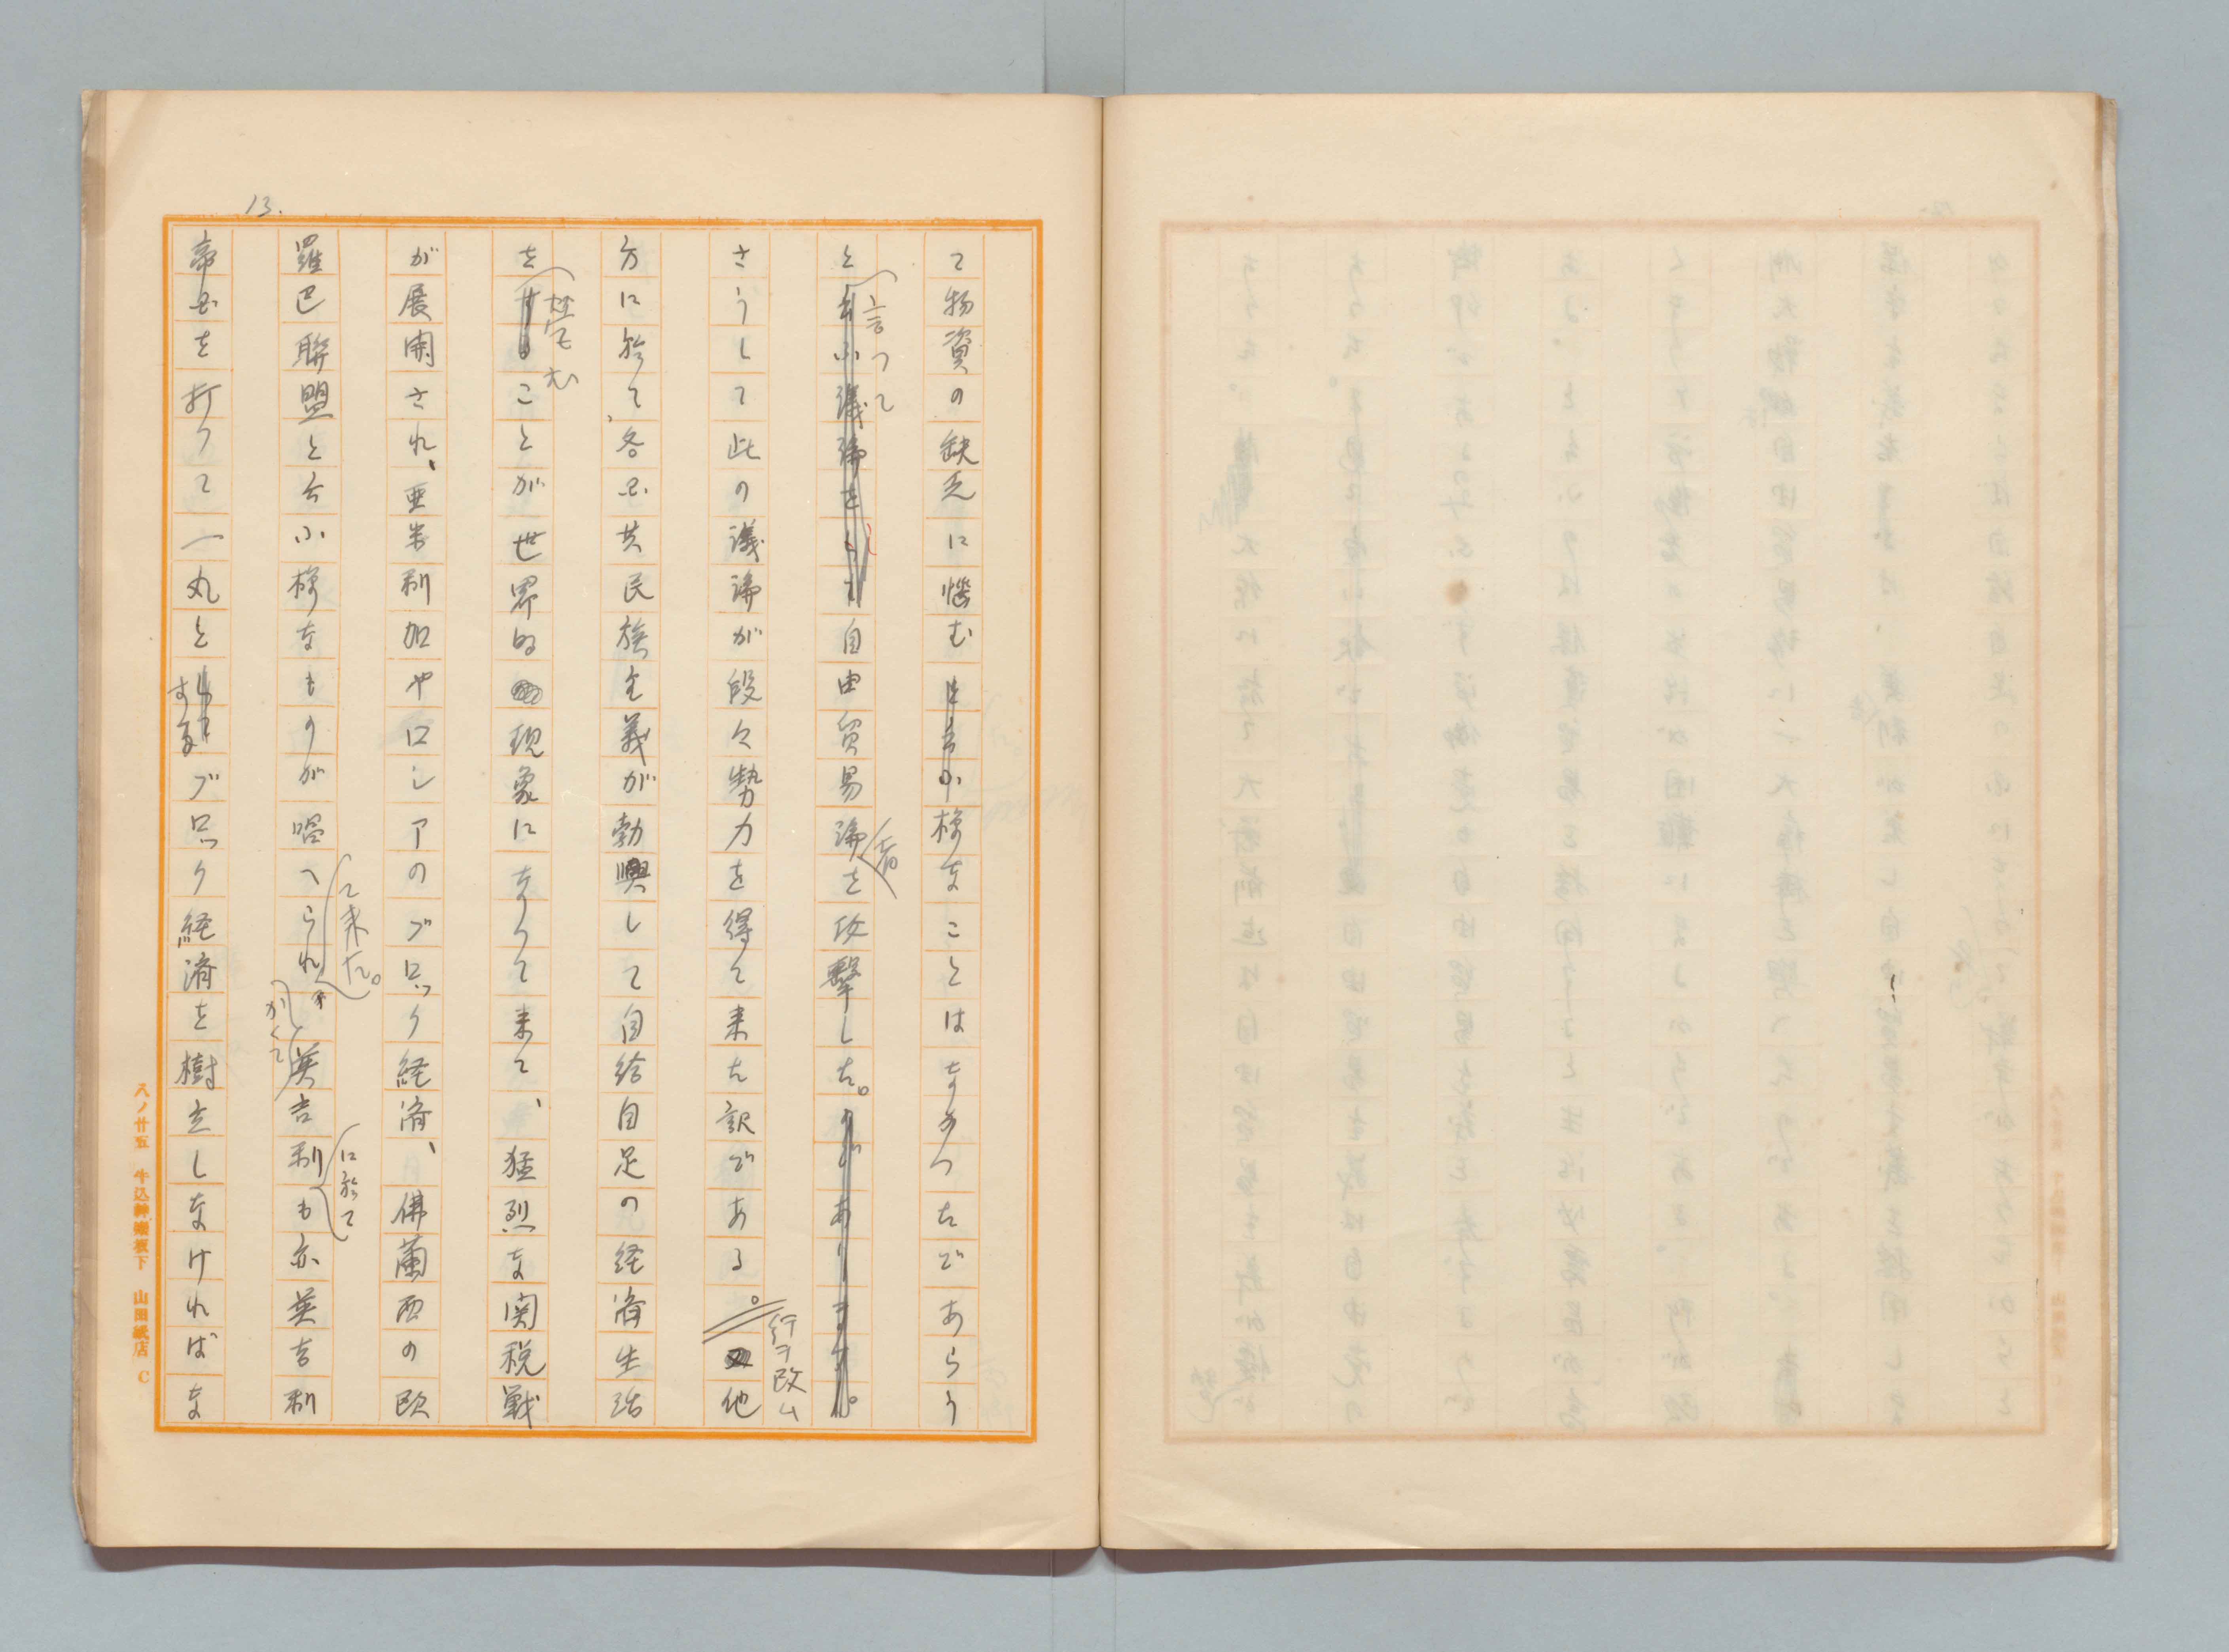 13.
て物資の缺乏に惱む様なことはなかつたであらう
と言つて自由貿易論者を攻擊した。
さうして此の議論が段々勢力を得て来た訳である。
行ヲ改ム
他
方に於て、各国共民族主義が勃興して自給自足の経済生活
を営むことが世界的現象になつて来て、猛烈な関税戦
が展開され、亜米利加やロシアのブロック経済、佛蘭西の欧
羅巴聯盟と云ふ様なものが唱へられて来た。かくて英吉利に於ても亦英吉利
帝国を打つて一丸とするブロック経済を樹立しなければな
八ノ廿五 牛込神楽坂下 山田紙店 C